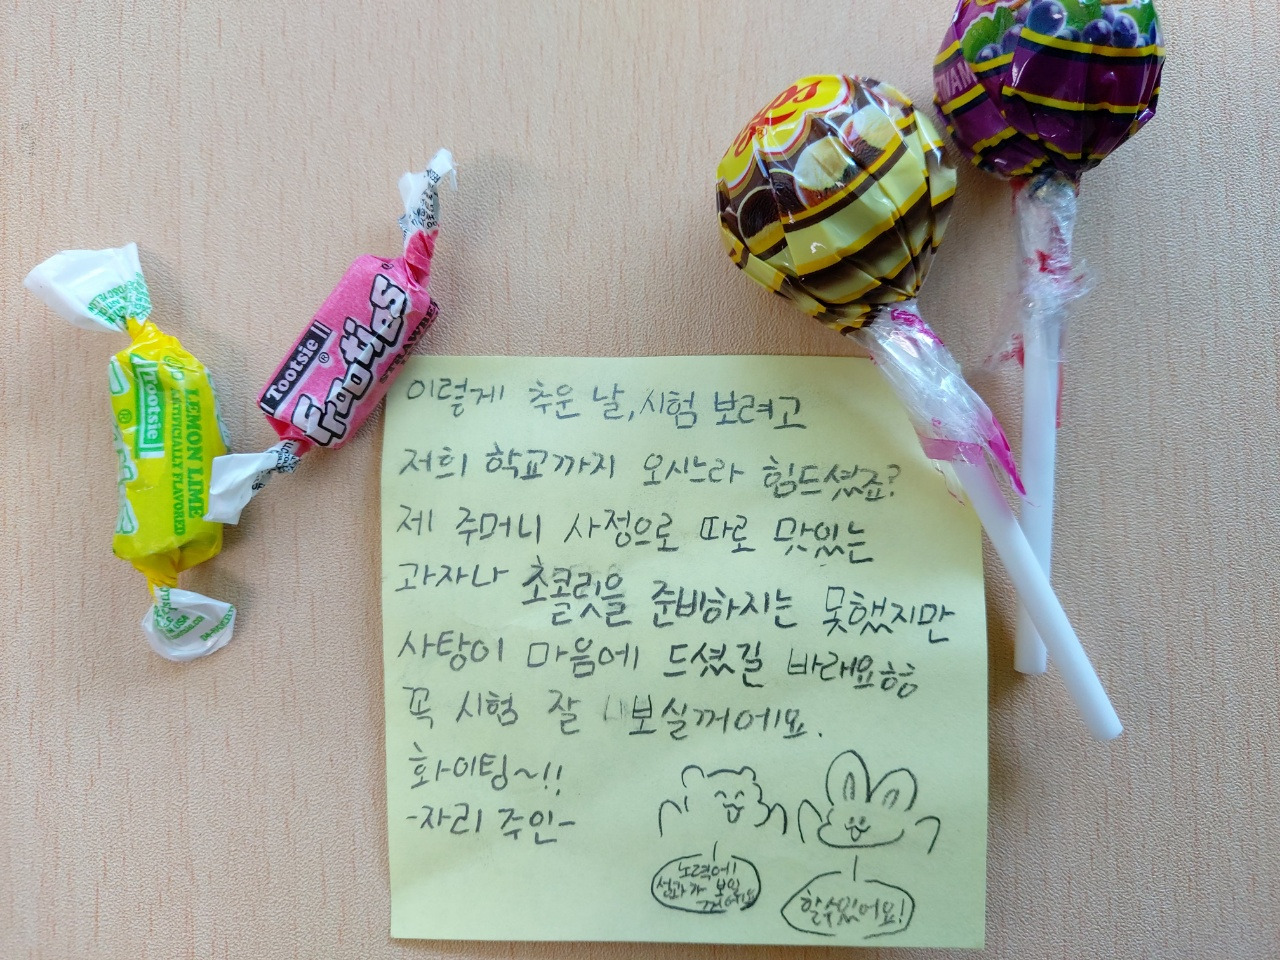 이렇게 추운 날, 시험 보려고
저희 학교까지 오시느라 힘드셨죠?
제 주머니 사정으로 따로 맛있는
과자나 초콜릿을 준비하지는 못했지만
사탕이 마음에 드셨길 바래요헝
꼭 시험 잘 보실꺼에요.
화이팅~!!
-자리 주인-
노력에!
성과가 보일
거에요
할 수 있어요!
Tootsie
Frooties
Tootsie
LEMON LIME
ARTIFICIALLY FLAVORED